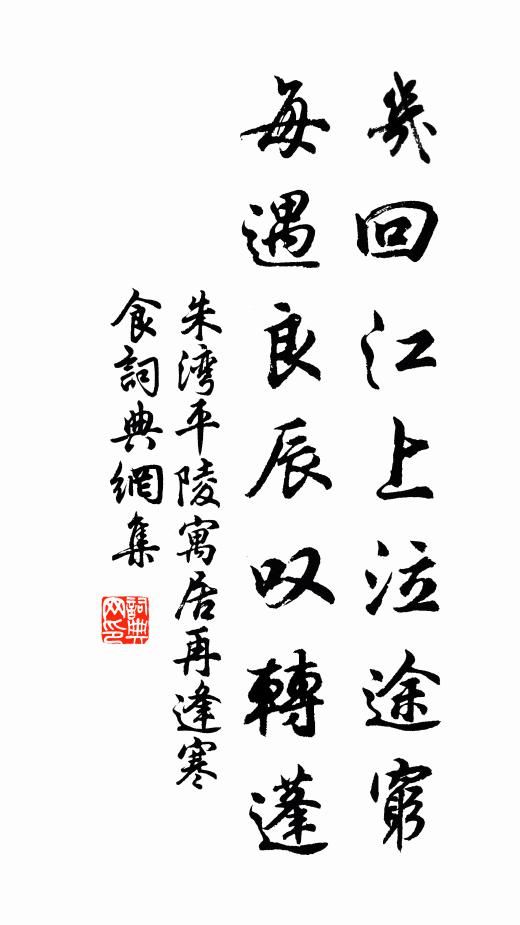 幾回江上泣途窮
每遇良辰叹轉蓬
朱湾平陵寓居再逢寒
食詞典網集
詞典
网印